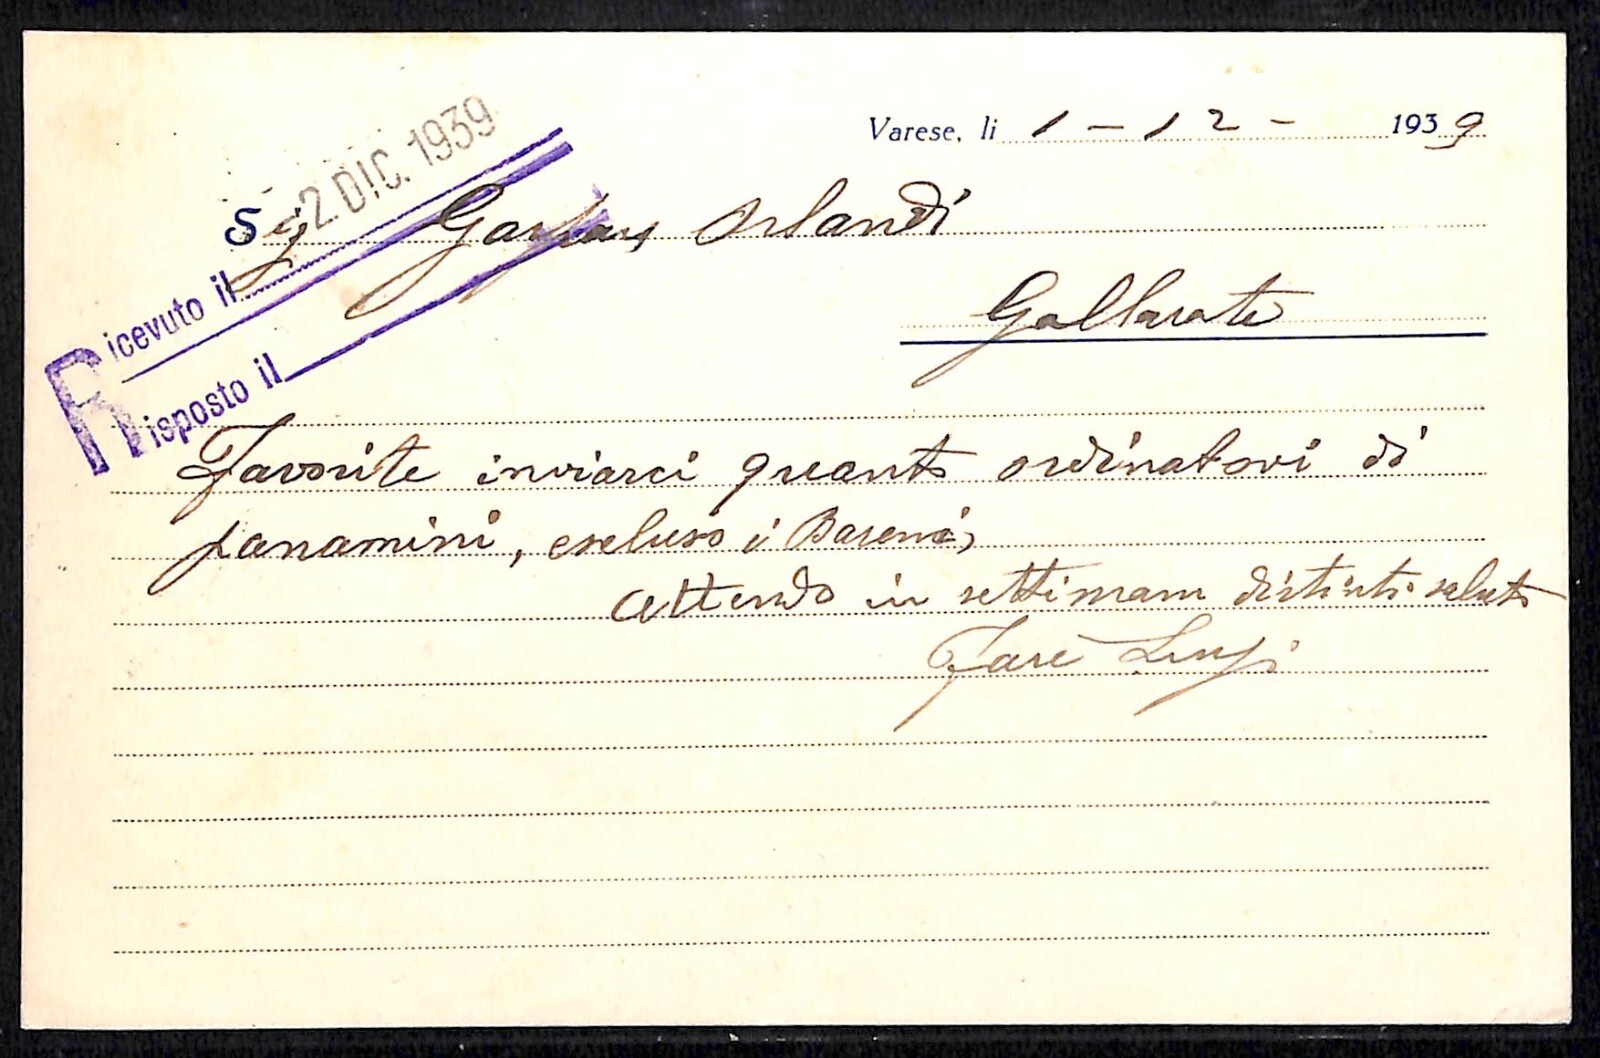 Varese, li 1 - 12 - 1939
2. DIC. 1939
Sig Orlandi
Gallarate
Ricevuto il
Risposto il
Favorite inviarci quanto ordinatovi di
panamini, escluso i
Attendo in settimana distinti saluti
Farè Luigi